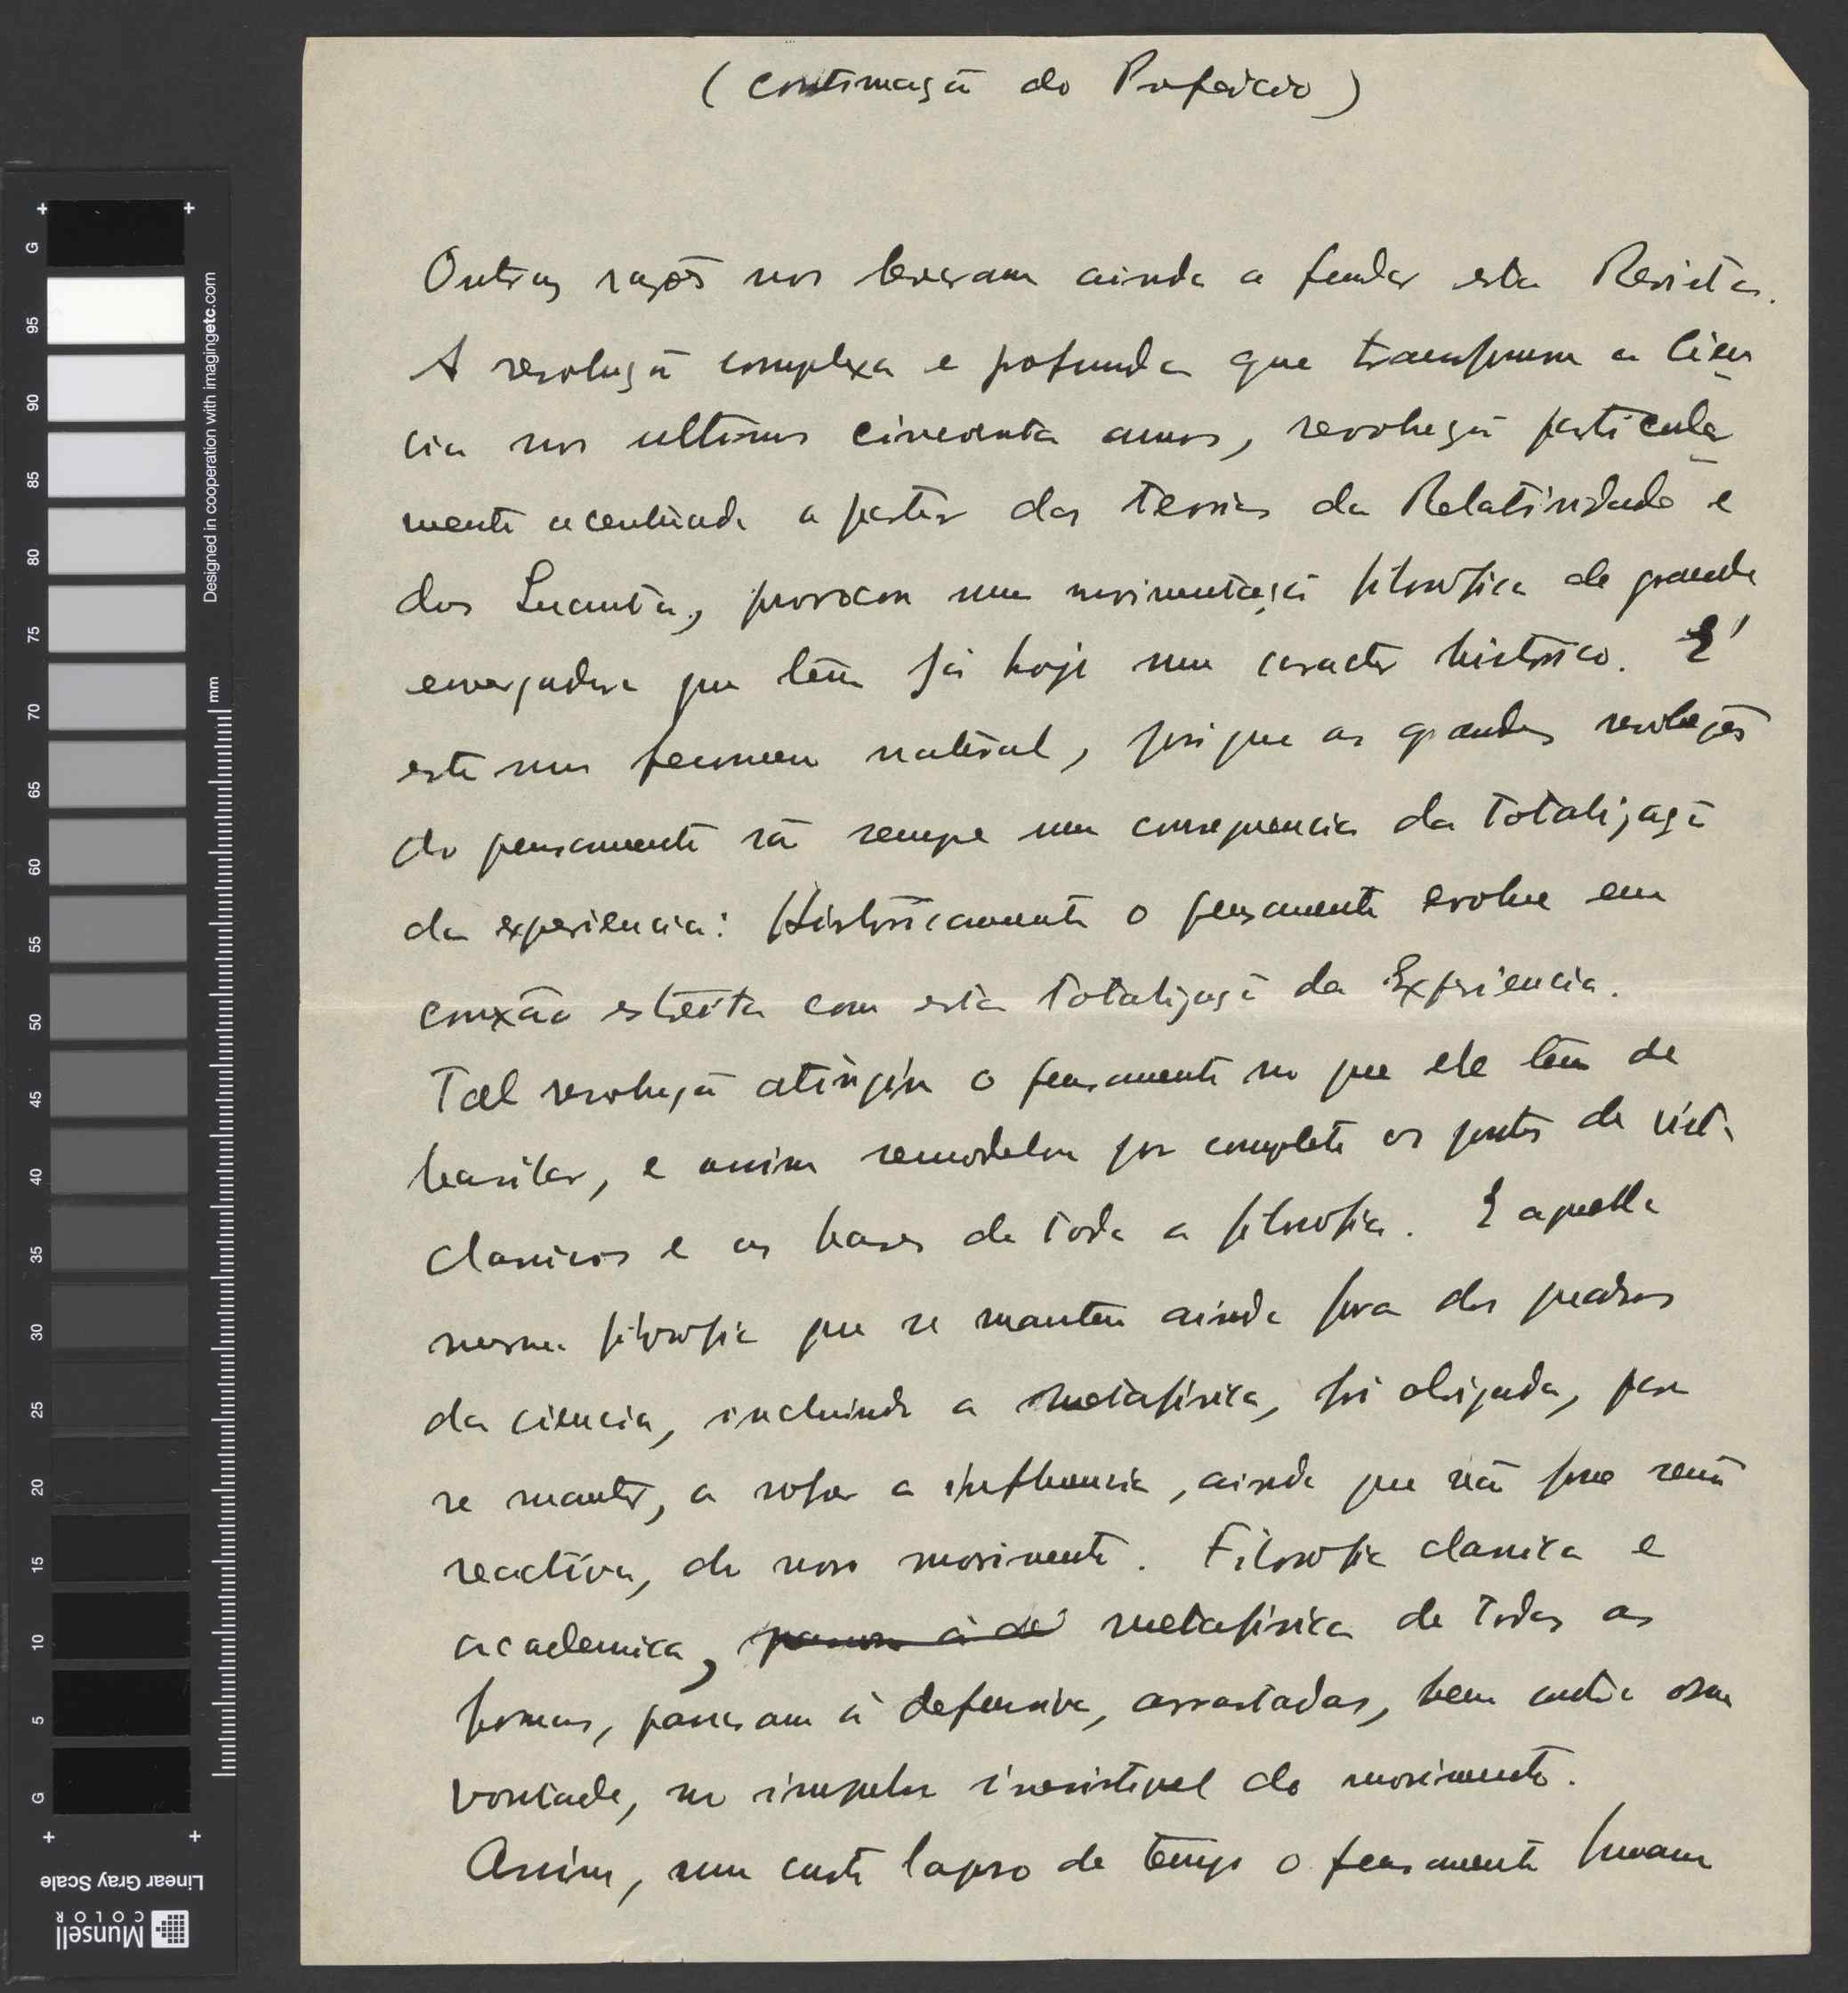 (continuação do Prefácio)
Outras razões nos levaram ainda a fundar esta Revista.
A revolução complexa e profunda que transformou a ciên
cia nos ultimos cincoenta annos, revolução particular
mente acentuada a partir das teorias da Relatividade e
dos Quanta, provocou uma movimentação filosofica de grande
envergadura que têm já hoje um caracter histórico. E'
este um fenomeno natural, porque as grandes revoluções
do pensamento são sempre uma consequencia da totalização
da experiencia: Históricamente o pensamento evolue em
conexão estreita com esta totalização da Experiencia.
Tal revolução atingiu o pensamento no que ele têm de
basilar, e assim remodelou por completo os pontos de vista
classicos e as bases de toda a filosofia. E aquella
mesma filosofia que se mantem ainda fora dos quadros
da ciencia, incluindo a metafísica, foi obrigada, para
se manter, a sofrer a influencia, ainda que não fosse senão
reactiva, do novo movimento. Filosofia classica e
academica, passou á de metafísica de todas as
formas, passaram á defensiva, arrastadas, bem contra sua
vontade, no impulso irresistivel do movimento.
Assim, num curto lapso de tempo o pensamento humano
G 95 90 85 80 75 70 65 60 55 50 45 40 35 30 25 20 15 10 5 G
mm
Designed in cooperation with imagingetc.com
Linear Gray Scale
Munsell
COLOR